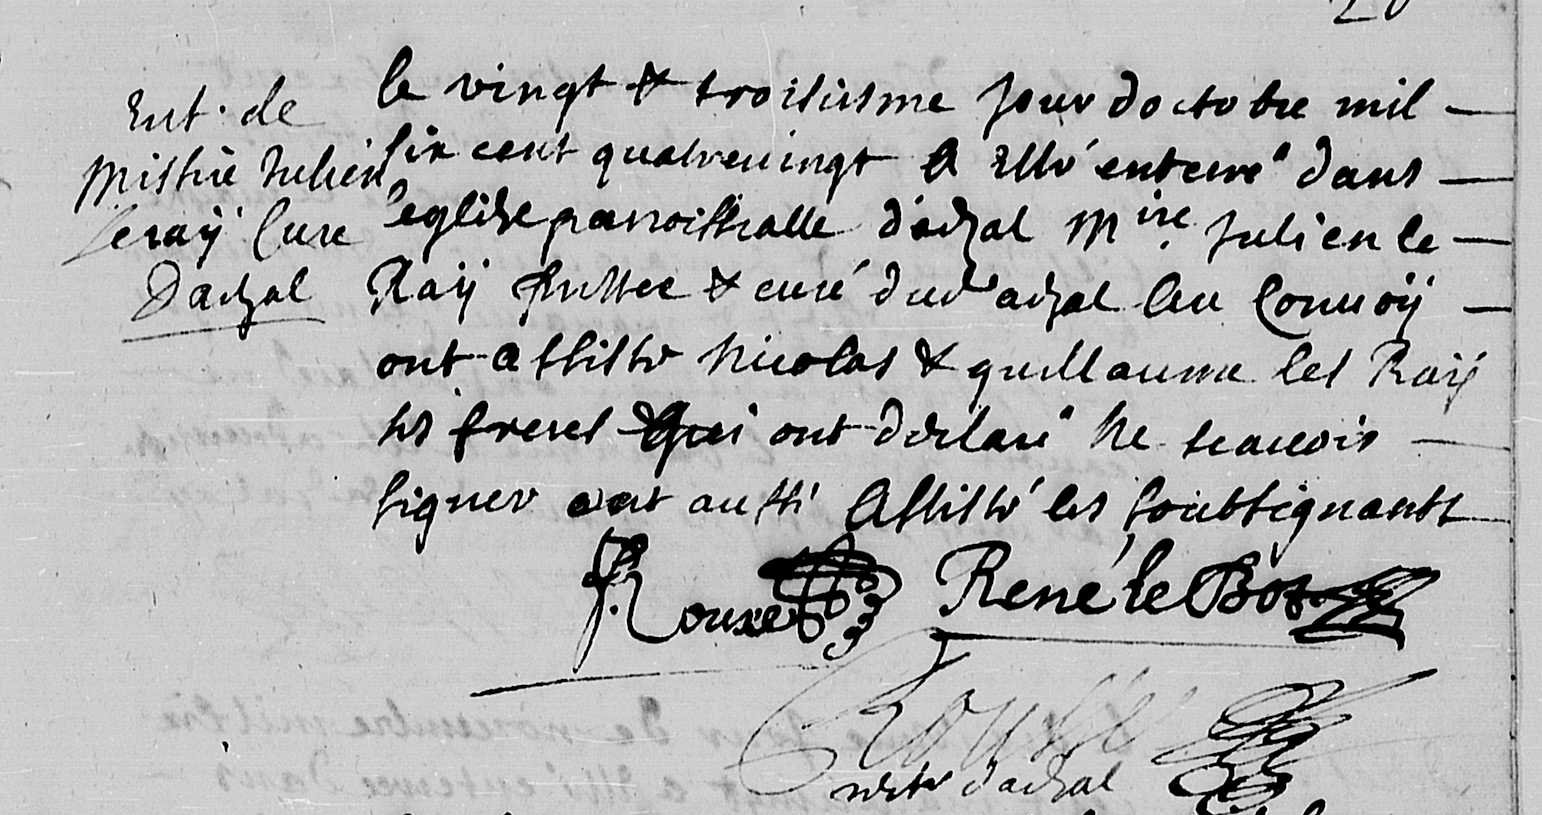 20
Ent. de
Missire Julien
Leraÿ Cure
Dadzal
le vingt & troisiesme jour doctobre mil
six cent quatrevingt a esté enterré dans
l'eglise parroissialle d'adzal Mire Julien le
Raÿ prestre & curé dud adzal au Convoÿ
ont assisté Nicolas & guillaume les Raÿ
ses freres Qui ont declaré ne scavoir
signer ont aussi assisté les soubsignants
J. Rouxel René le Bot
Rouxel
ptre d'adzal